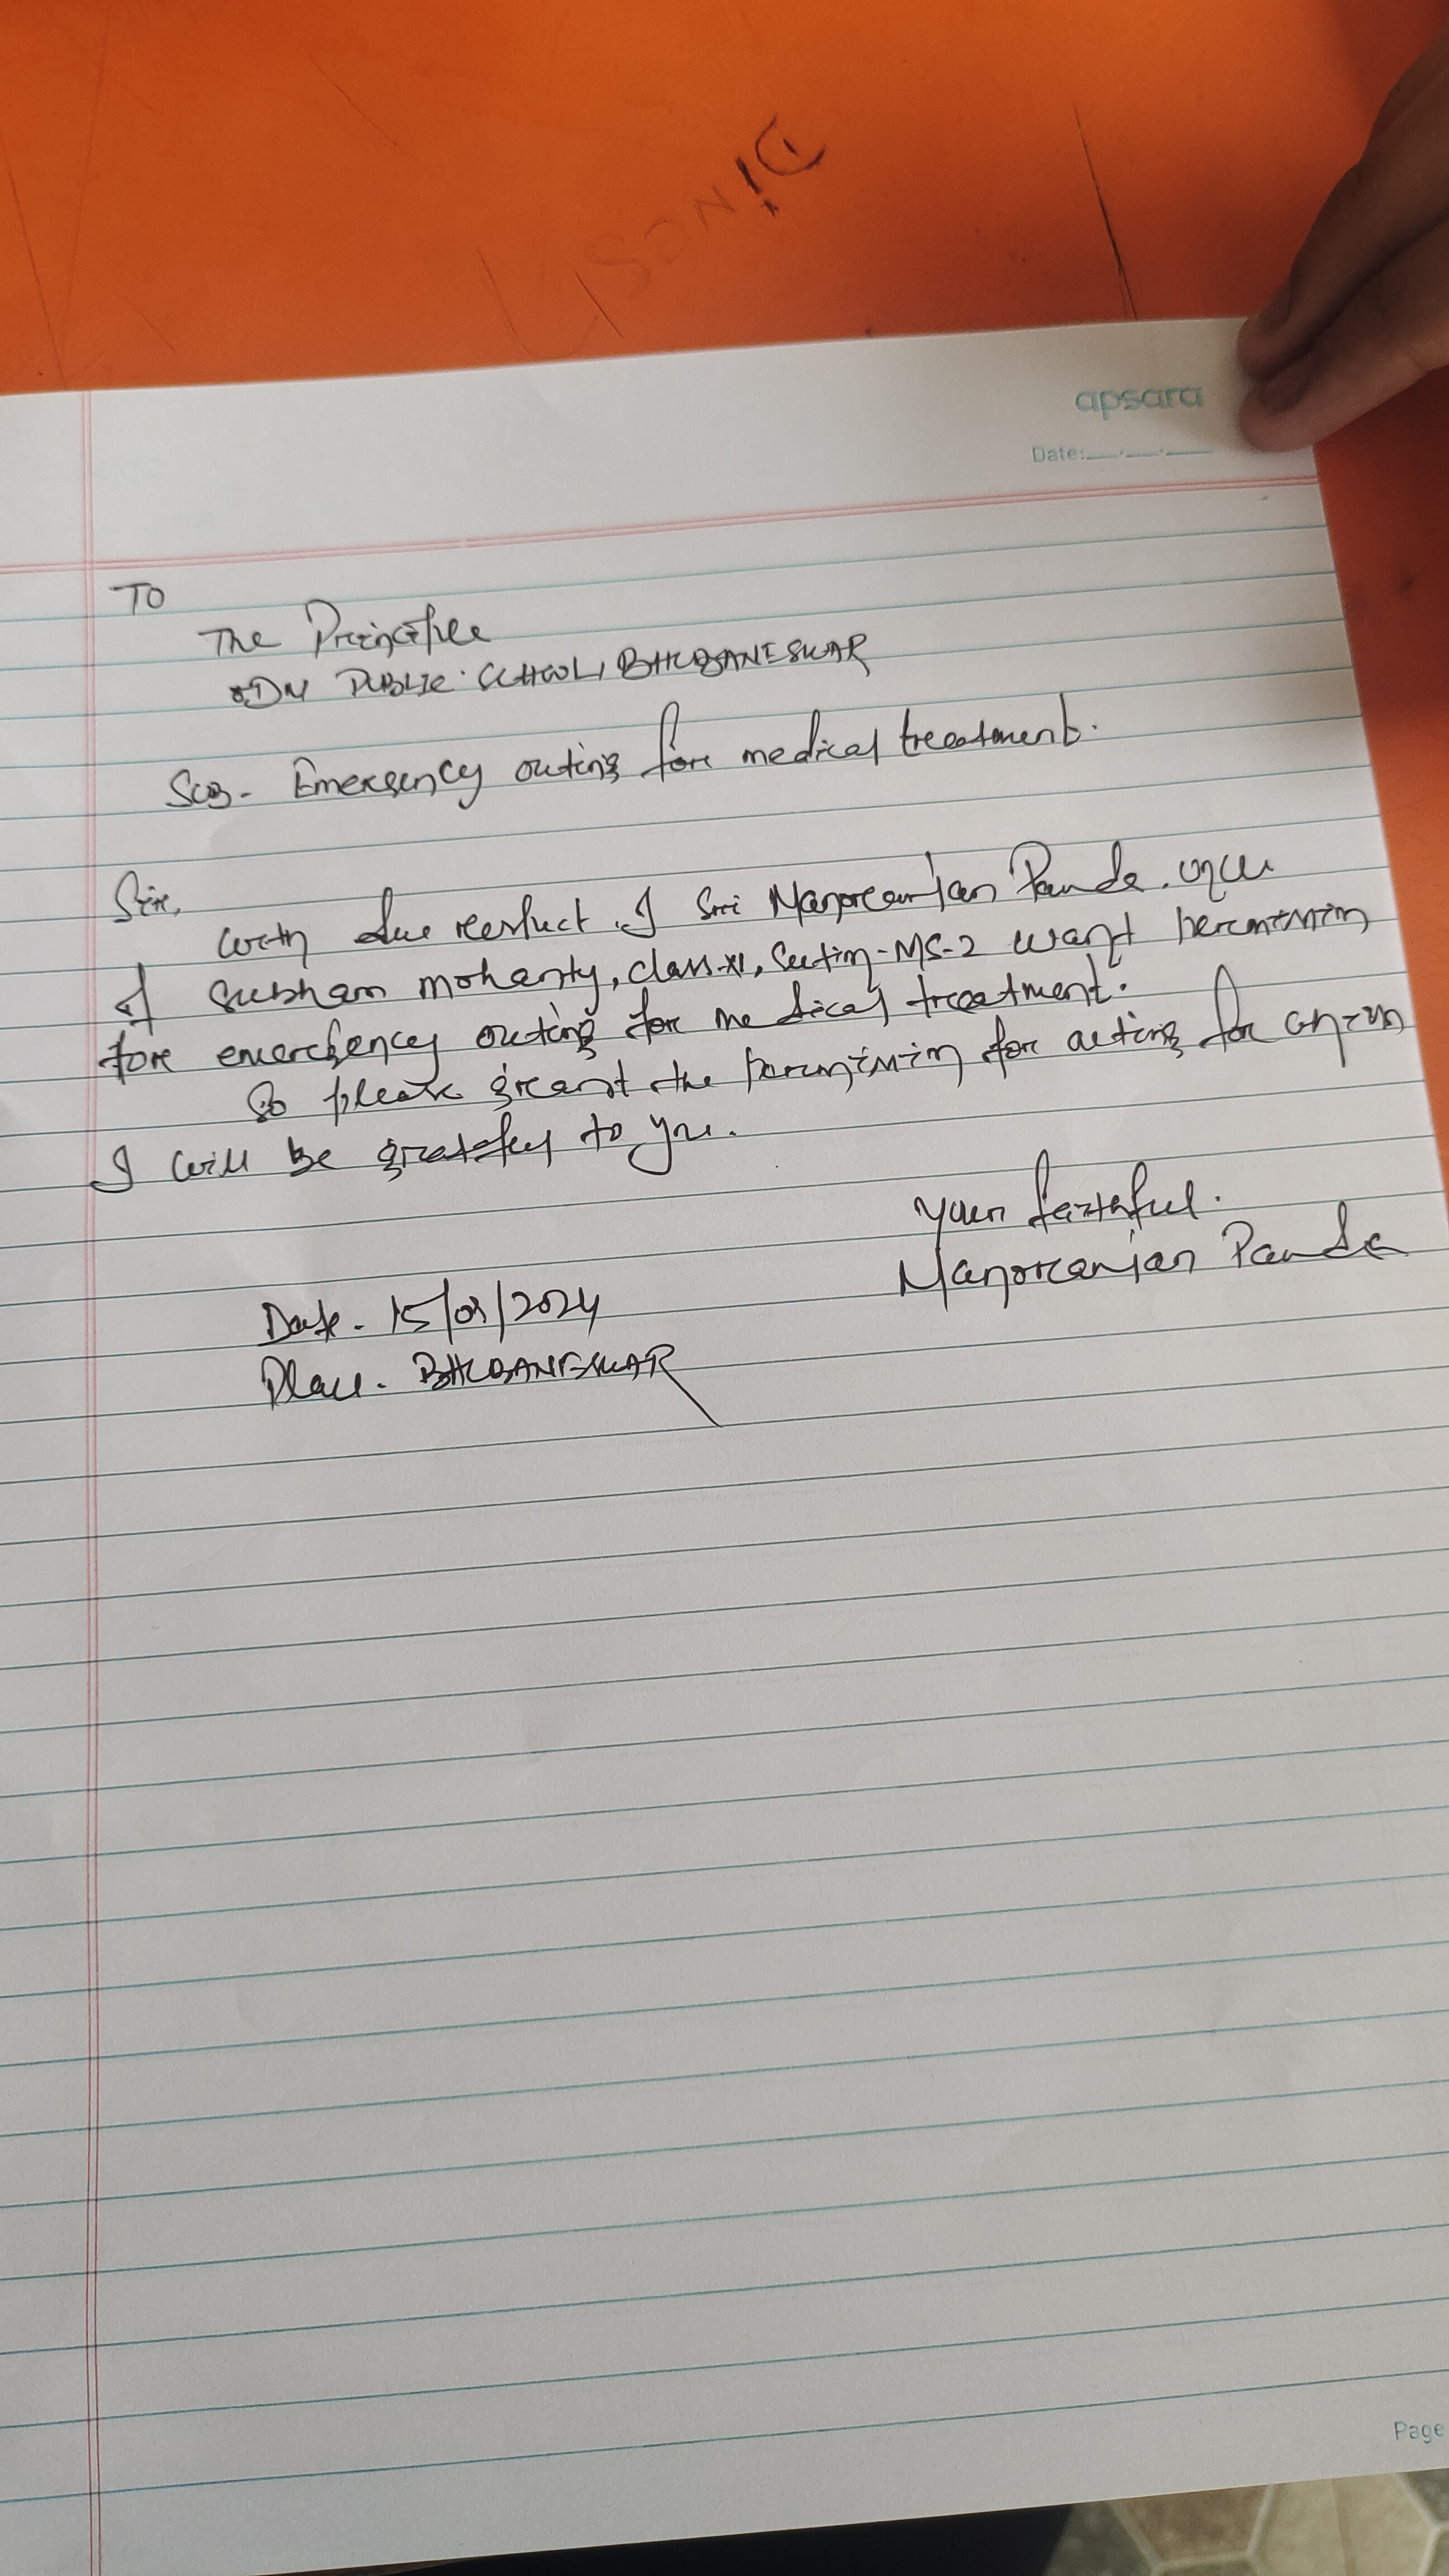 DINOS
apsara
Date:
TO
The Principle
ODM PUBLIC SCHOOL, BHUBANESWAR
Sub- Emergency outing for medical treatment.
Sir,
With due respect. I Sri Manoranjan Panda. uncle
of Subham mohanty, class-XI, Section-MS-2 want permission
for emergency outing for medical treatment.
So please grant the permission for outing for
I will be grateful to you.
Your faithful.
Manoranjan Panda
Date. 15/0/2024
Place. BHUBANESWAR
Page